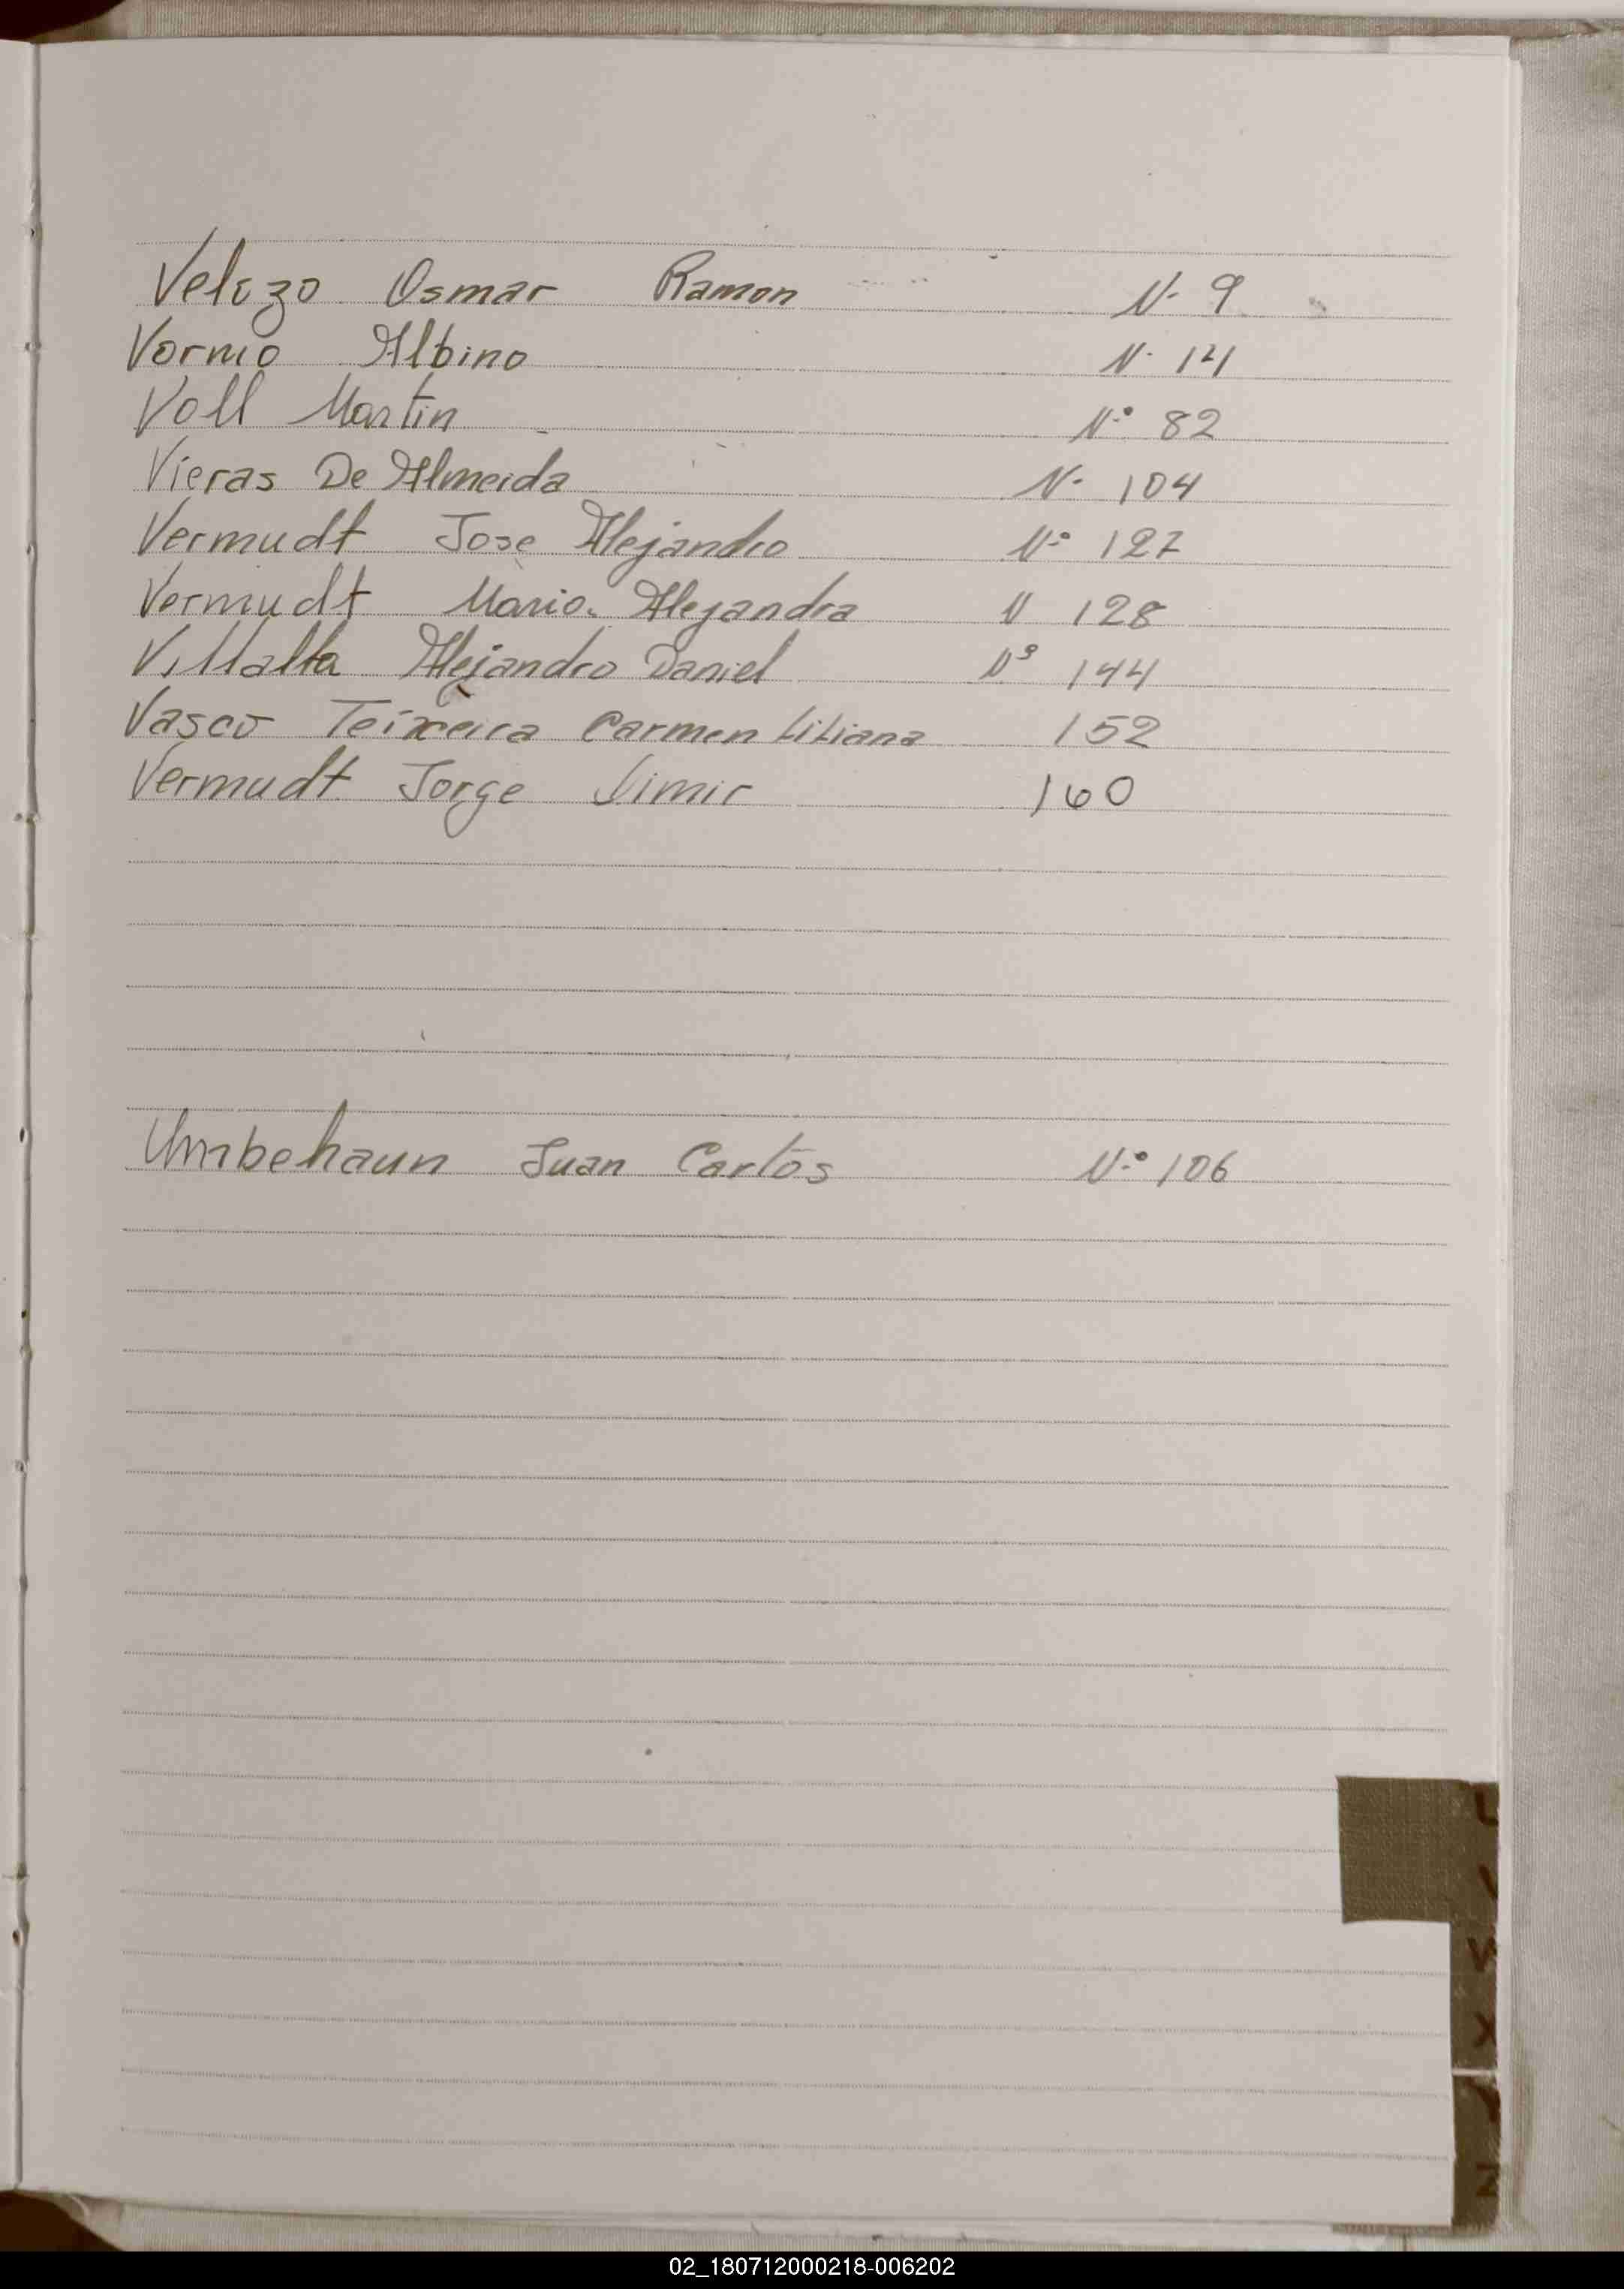 Velozo Osmar Ramon N- 9
Vornio Albino N- 14
Voll Martin Nº 82
Vieras De Almeida N- 104
Vermudt Jose Alejandro Nº 127
Vermudt Mario. Alejandra N 128
Villalla Alejandro Daniel Nº 144
Vasco Teixeira Carmen Liliana 152
Vermudt Jorge 160
Umbehaun Juan Carlos Nº 106
U
V
W
X
Y
Z
02_180712000218-006202